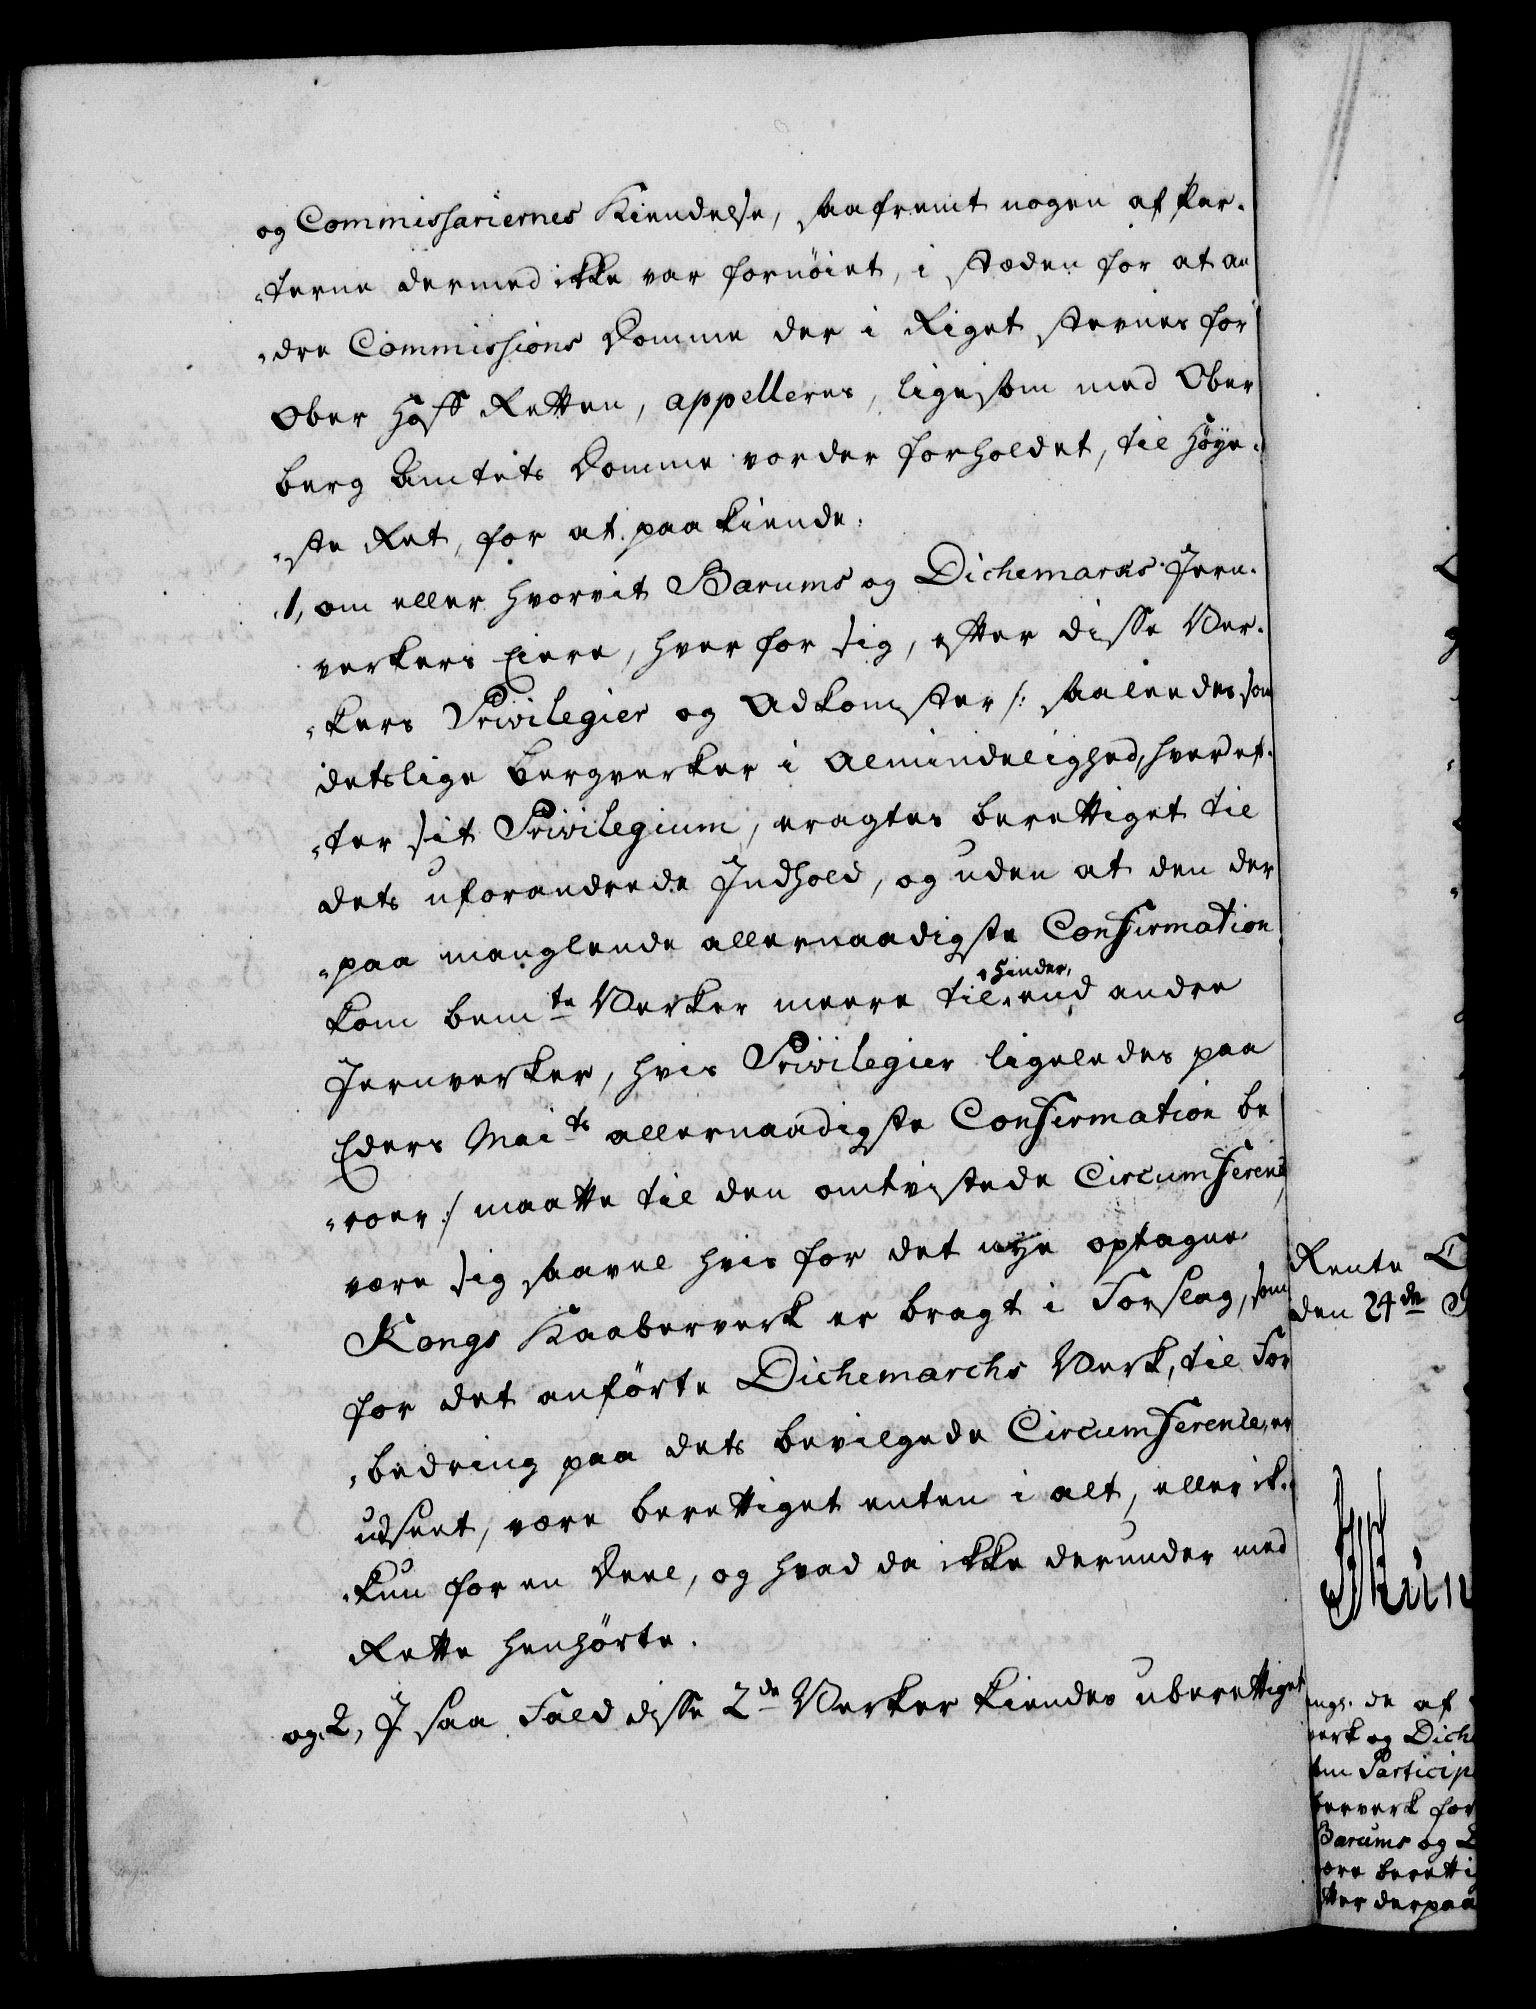 og Commissariernes Kiendelse, saafremt nogen af Par-
„terne dermed ikke var fornøiet, i stæden for at an
„dre Commissions Domme der i Riget stevnes for
Ober Hoff Retten, appelleres, ligesom med Ober
berg Amtets Domme vorder forholdet, til Høye-
„ste Ret, for at paakiende.
1, om eller hvorvit Barums og Dichemarks Jern-
verkers Eiere, hver for sig, efter disse Ver-
„kers Privilegier og Adkomster /: saaleedes som
detslige Bergverker i Almindelighed, hver ef-
„ter sit Privilegium, eragtes berettiget til
dets uforandrede Indhold, og uden at den der
„paa manglende allernaadigste Confirmation
kom bemte Verker meere til Hinder, end andre
Jernverker, hvis Privilegier ligeledes paa
Eders Maits allernaadigste Confirmation be
„roer :/ maatte til den omtvistede Circumference
være sig saavel hvis for det nye optagne
Kongs Kaaberverk er bragt i Forslag, som
for det anførte Dichemarchs Verk, til For
„bedring paa dets bevilgede Circumference, er
udseet, være berettiget enten i alt, eller ik-
„kun for en Deel, og hvad da ikke derunder med
Rette henhørte.
og 2, I saa Fald disse 2de Verker kiendes uberettiget
Rente
den 24de
de af
verk og Dich
Particip
berverk for
Barums og
ære beretti
tter derpaa